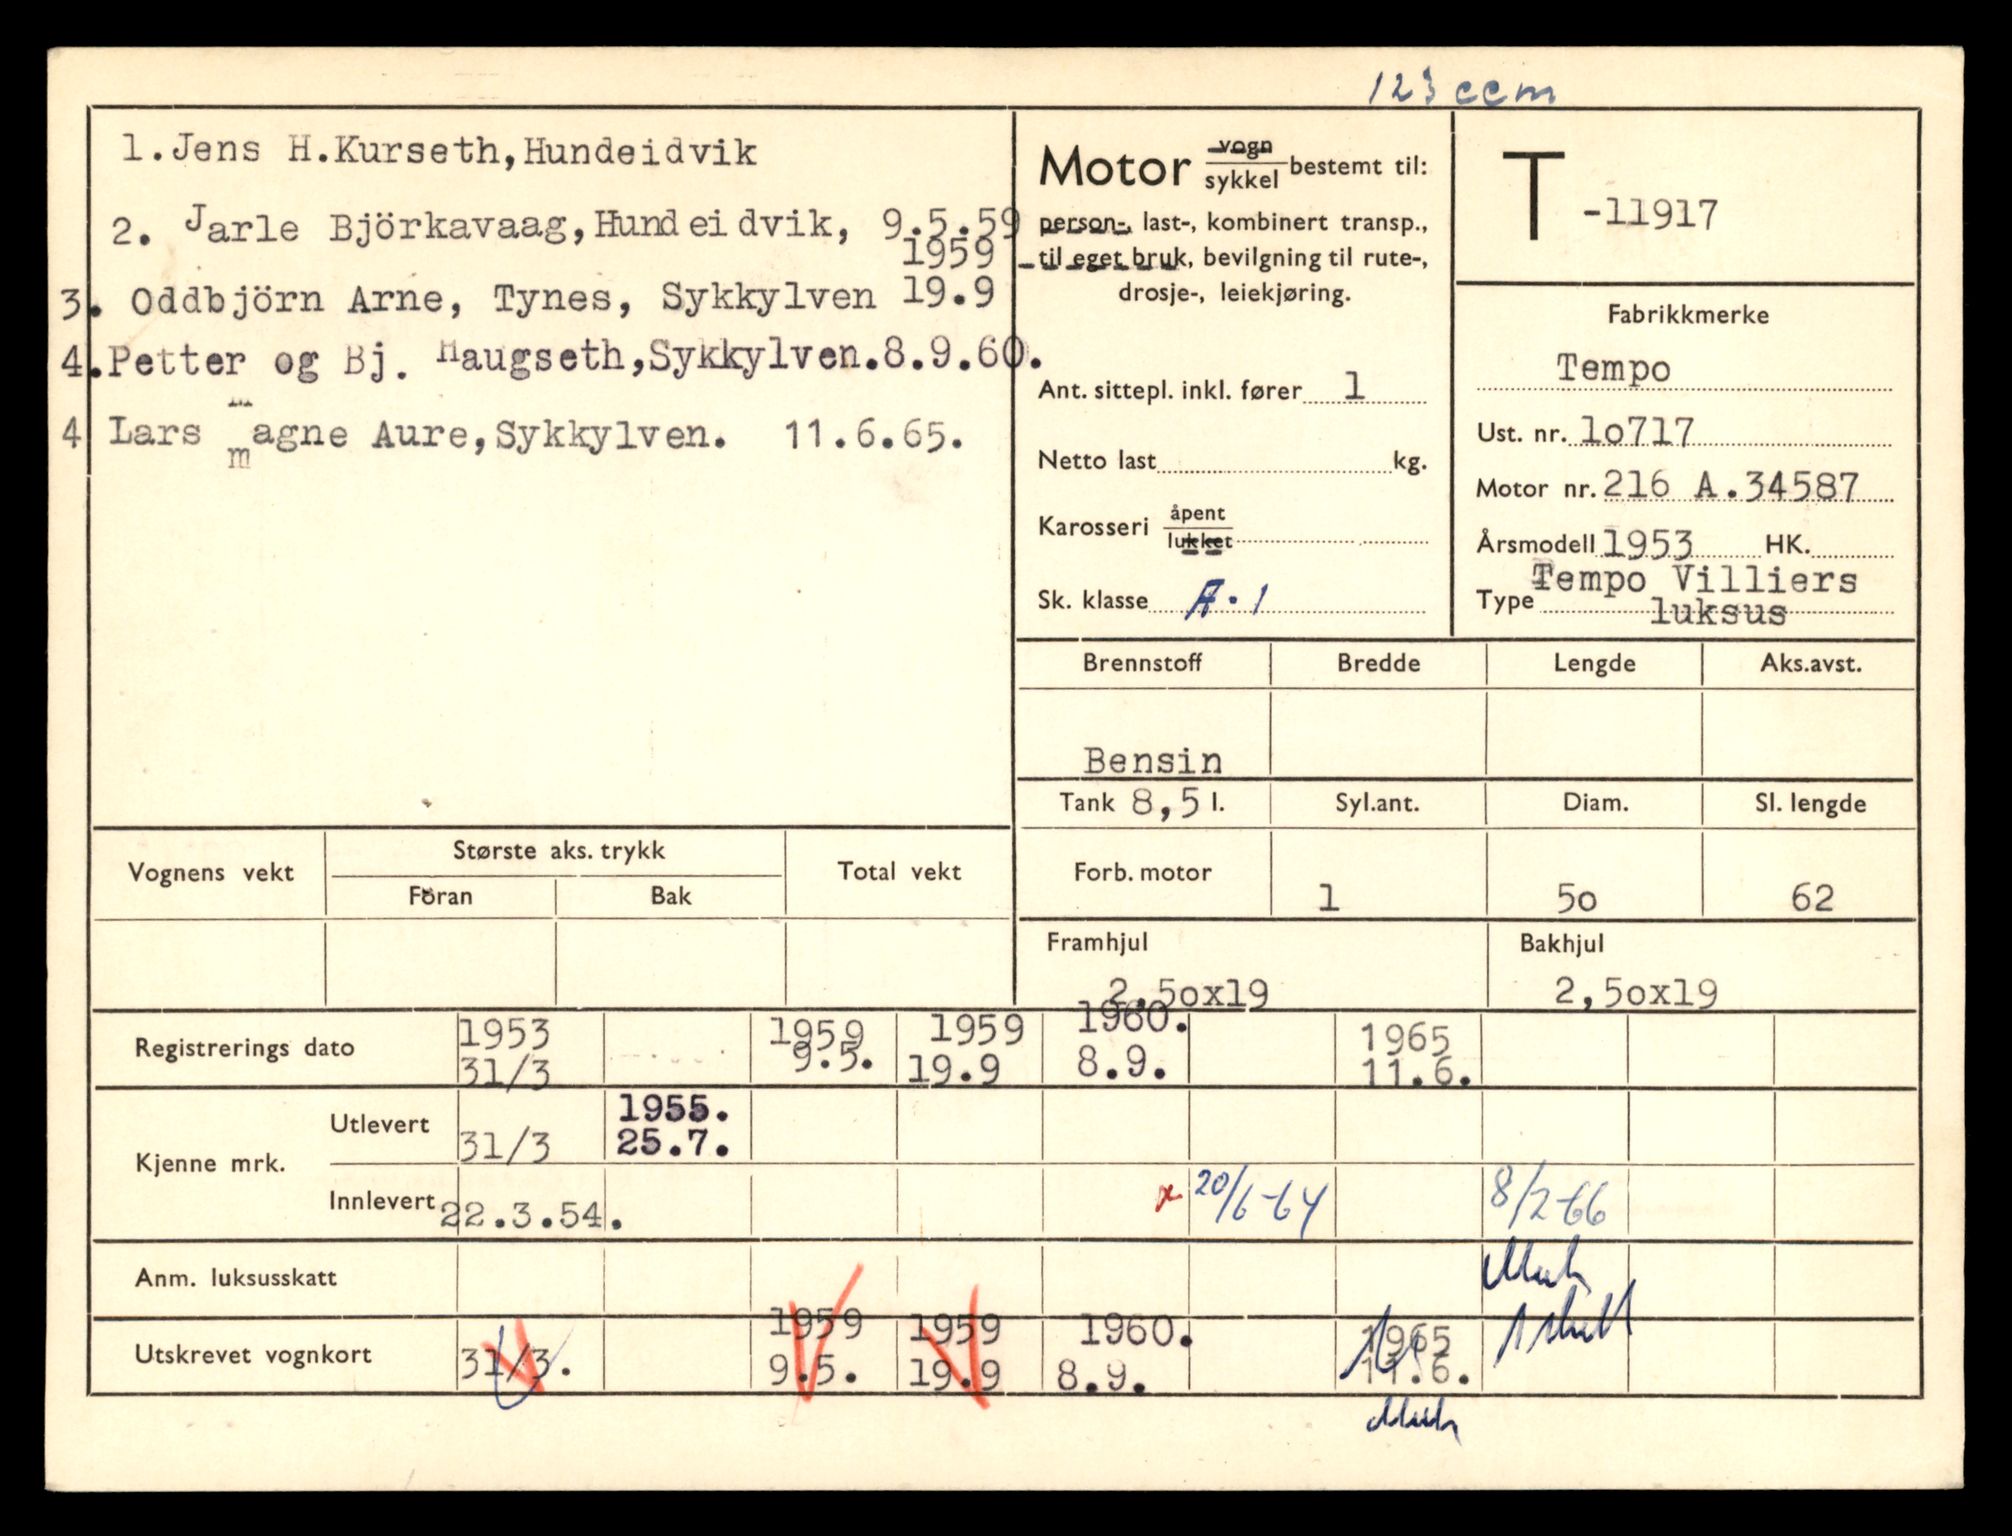 123 ccm
1. Jens H.Kurseth, Hundeidvik
2. Jarle Björkavaag, Hundeidvik, 9.5.59
1959
3. Oddbjörn Arne, Tynes, Sykkylven 19.9
4. Petter og Bj. Haugseth, Sykkylven. 8.9.60.
4 Lars magne Aure, Sykkylven. 11.6.65.
Motor vogn/sykkel bestemt til:
person-, last-, kombinert transp.,
til eget bruk, bevilgning til rute-,
drosje-, leiekjøring.
Ant. sittepl. inkl. fører 1
Netto last kg.
Karosseri åpent/lukket
Sk. klasse A.1
T -11917
Fabrikkmerke
Tempo
Ust. nr. 1o717
Motor nr. 216 A.34587
Årsmodell 1953 HK.
Type Tempo Villiers
luksus
Brennstoff Bredde Lengde Aks.avst.
Bensin
Tank 8,5 l. Syl.ant. Diam. Sl. lengde
Forb. motor 1 5o 62
Framhjul Bakhjul
2,5ox19 2,5ox19
Vognens vekt Største aks. trykk Total vekt
Foran Bak
Registrerings dato 1953 1959 1959 1960. 1965
31/3 9.5. 19.9 8.9. 11.6.
Kjenne mrk. Utlevert 31/3 1955.
25.7.
Innlevert 22.3.54. x 20/6-64 8/2-66
Anm. luksusskatt
Utskrevet vognkort 31/3. 1959 1959 1960. 1965
9.5. 19.9 8.9. 11.6.